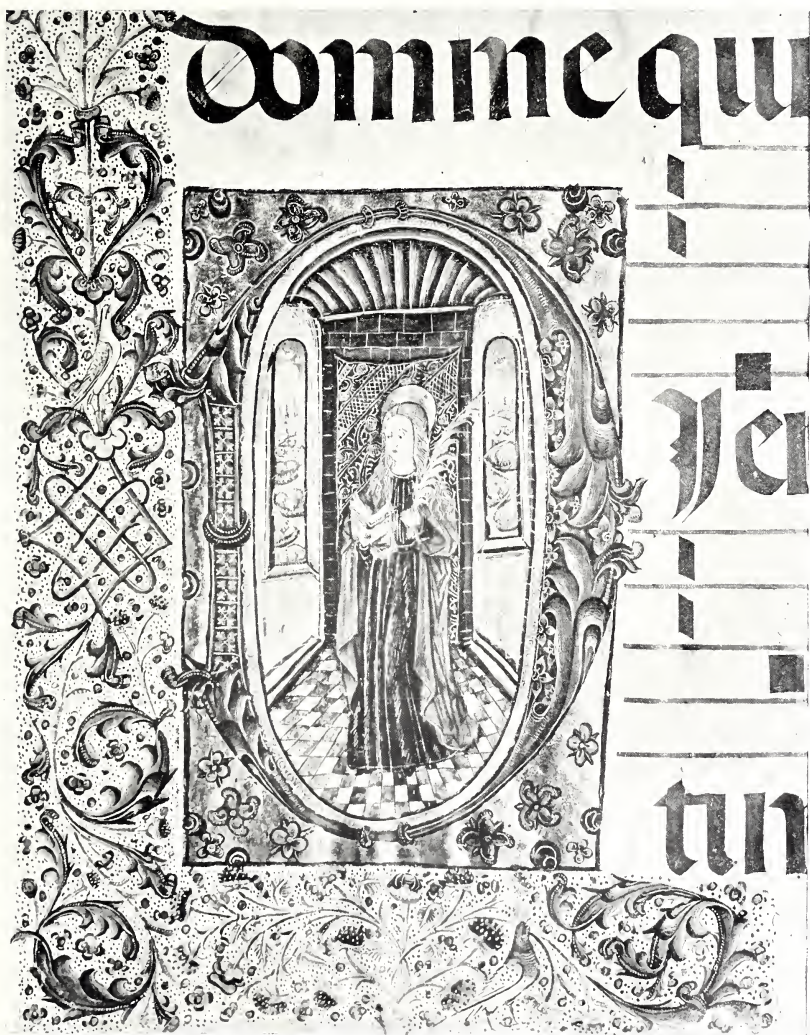 Domine qui
O
Jer
tin